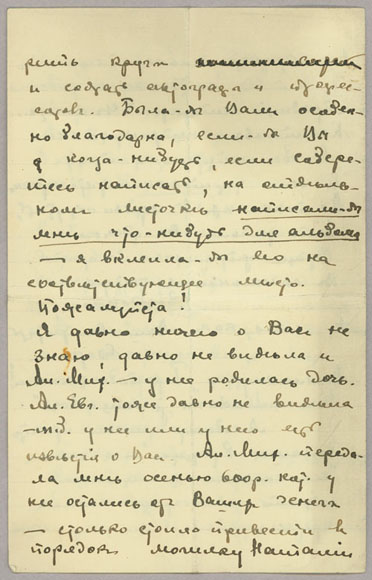 рить кругъ
и собрать автографъ и адрес-
сатов. Была-бы Вамъ особен-
но благодарна, если-бы Вы
когда-нибудь, если собере-
тесь написать, на отдѣль-
номъ листочкѣ написали-бы
мнѣ что-нибудь для альбома
— я вклеила-бы его на
соотвѣтствующее мѣсто.
Пожалуйста!
Я давно ничего о Васъ не
знаю, давно не видѣла и
Ан. Мих. — у нее родилась дочь.
Ан. Евг. тоже давно не видѣла
у нее или у него есть
извѣстія о Васъ. Ан. Мих. переда-
ла мнѣ осенью 6 кор. кот. у
нее остались отъ Вашихъ денегъ
— столько стоило привести въ
порядокъ могилку Наталіи